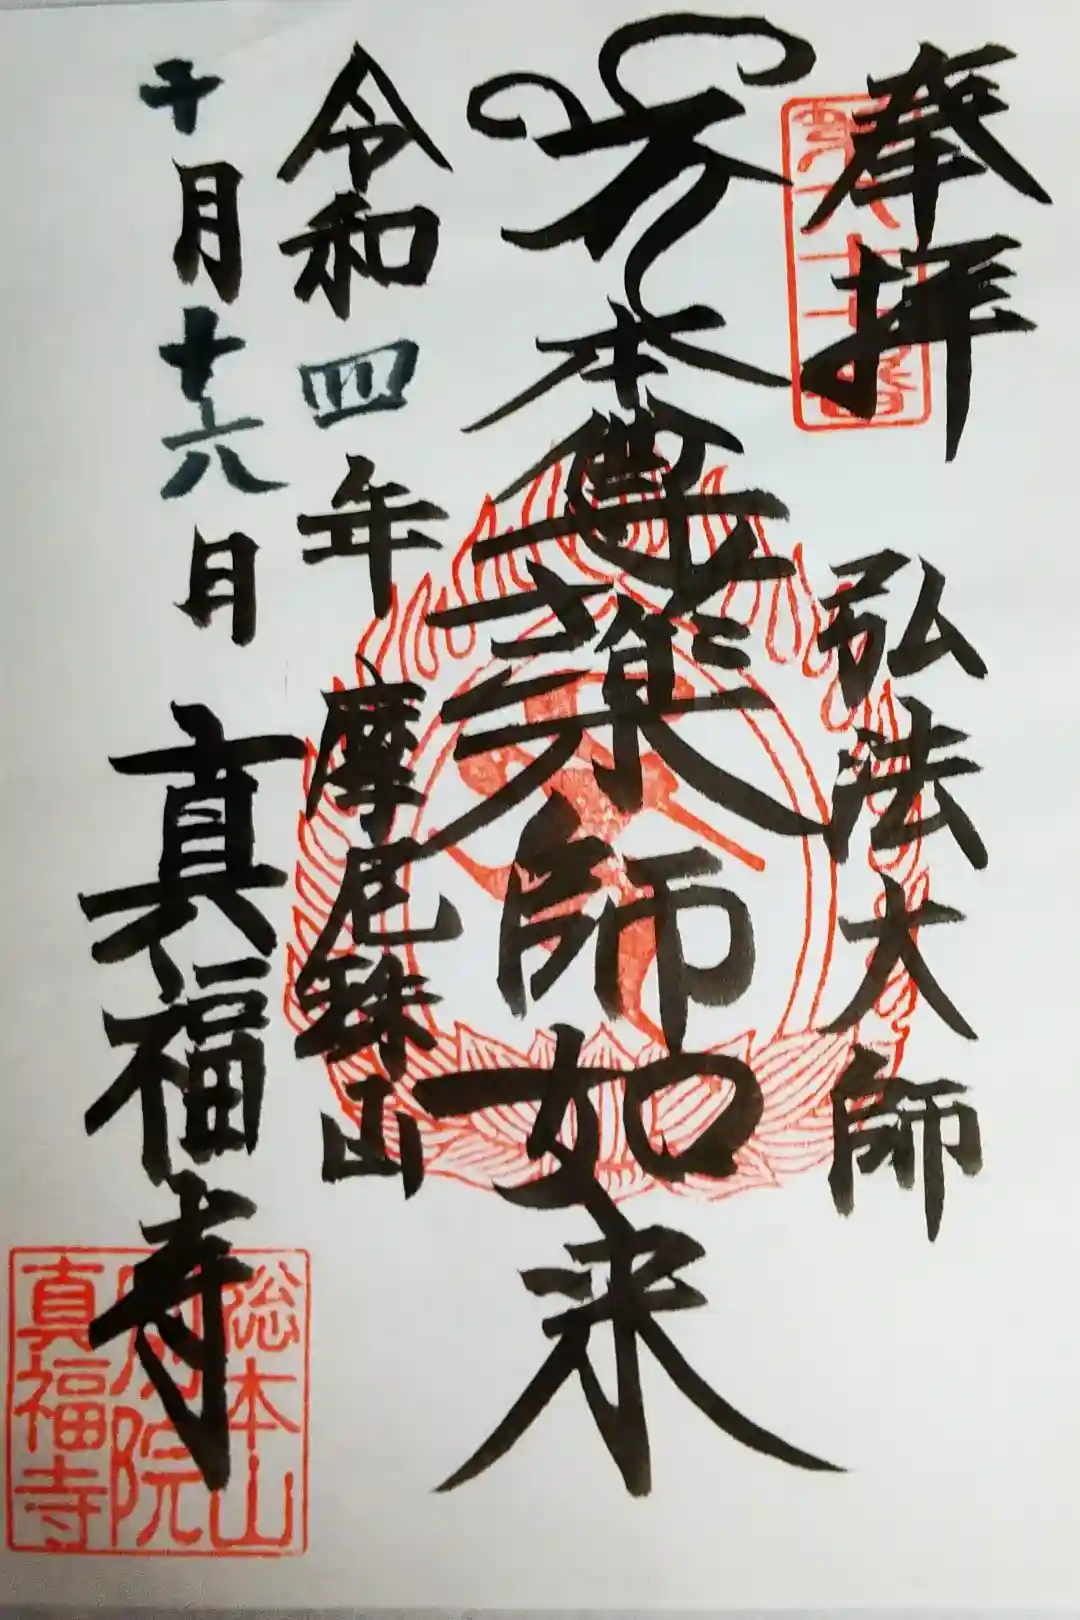 奉拝 弘法大師
本尊薬師如来
令和四年 摩尼珠山
十月十六日 真福寺
第六十七番
総本山
別院
真福寺